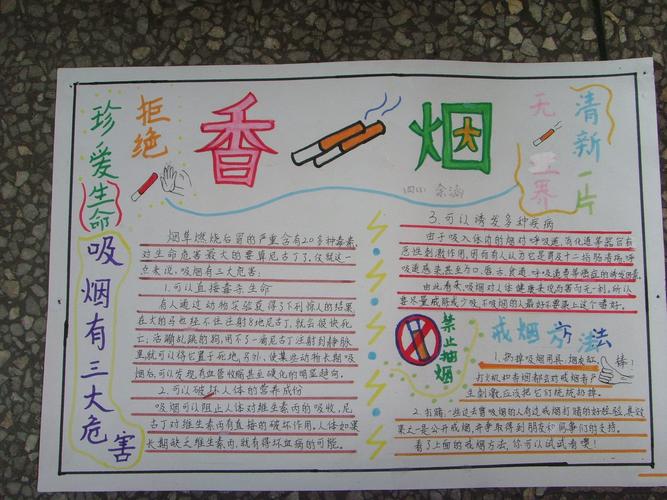 珍爱生命
拒绝
香烟
无
界
清新一片
吸烟有三大危害
烟草燃烧后冒的严重含有20多种毒素,
对生命危害最大的要算尼古丁了,仅就这一
点来说,吸烟有三大危害:
1.可以直接毒杀生命
有人通过动物实验获得了下列惊人的结果,
在大的马也经不住注射8地尼古丁,就会很快死
亡;活蹦乱跳的狗,用不了一滴尼古丁注射到静脉
里就可以将它置于死地。另外,使某些动物长期吸
烟后,可以发现有血管收缩甚至硬化的明显趋向。
2.可以破坏人体的营养成份
吸烟可以阻止人体对维生素丙的吸收,尼
古丁对维生素丙有直接的破坏作用,人体如果
长期缺乏维生素丙,就有得坏血病的可能。
3.可以诱发多种疾病
由于吸入体内的烟对呼吸道、消化道等器官有
恶性刺激作用,因而有人认为它是胃及十二指肠溃疡,呼
吸道感染甚至方口、唇、舌、食道、呼吸道黄等癌症的诱发因素。
由此看来,吸烟对人体健康来说为害可无一利。所以
要尽量戒除或少吸,不吸烟的人最好不要染上这个嗜好。
禁止抽烟
戒烟方法
1.扔掉吸烟用具:烟灰缸,
棒!
打火机和香烟都会对戒烟者产
生刺激,应该把它们统统扔掉。
2.打赌:一些过去曾吸烟的人有过戒烟打赌的好经验,其效
果之一是公开戒烟,并争取得到朋友和同事们的支持。
看了上面的戒烟方法,你可以试试看喽!